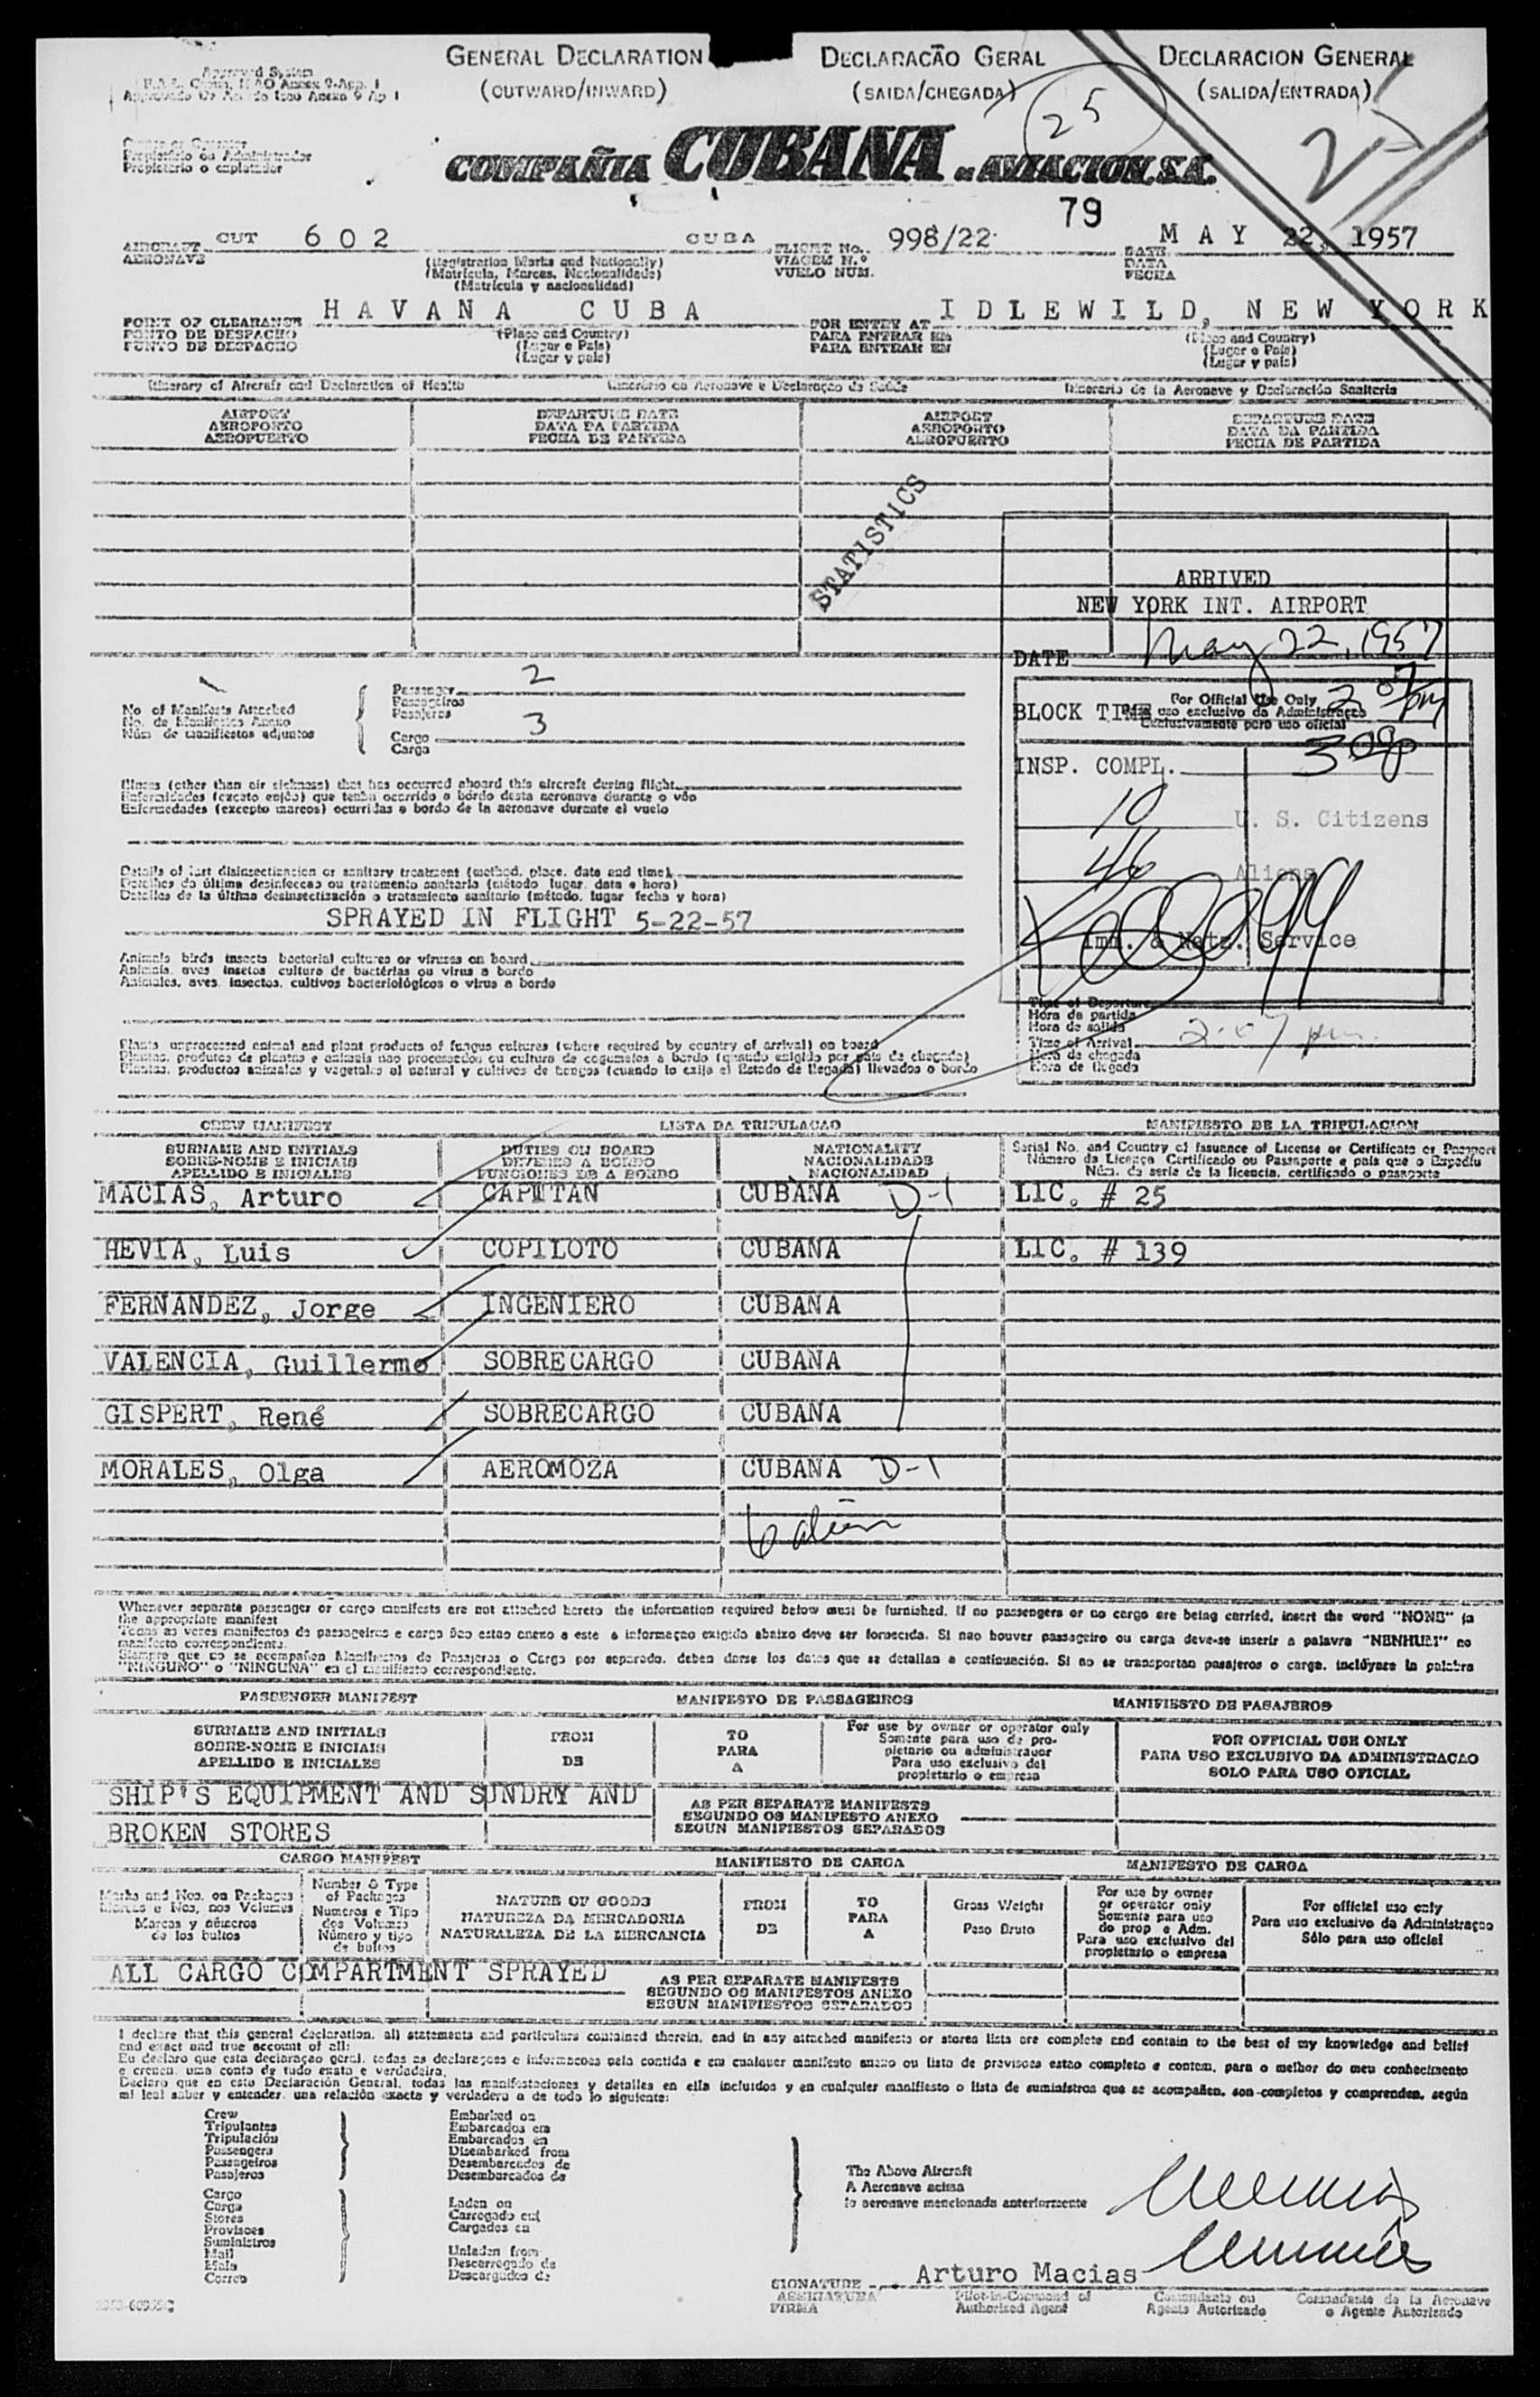 GENERAL DECLARATION
(OUTWARD/INWARD)
DECLARAÇÃO GERAL
(SAIDA/CHEGADA)
DECLARACION GENERAL
(SALIDA/ENTRADA)
25
25
Approved System
Propietario o explotador
COMPAÑIA CUBANA DE AVIACION, S.A.
79
AIRCRAFT CUT 602 CUBA FLIGHT No. 998/22 DATE MAY 22, 1957
AERONAVE (Registration Marks and Nationality) VIAGEM N.º DATA
(Matrícula, Marcas, Nacionalidade) VUELO NUM. FECHA
(Matrícula y nacionalidad)
POINT OF CLEARANCE HAVANA CUBA FOR ENTRY AT IDLEWILD, NEW YORK
PONTO DE DESPACHO (Place and Country) PARA ENTRAR EM (Place and Country)
PUNTO DE DESPACHO (Lugar e Pais) PARA ENTRAR EN (Lugar e Pais)
(Lugar y pais) (Lugar y pais)
Itinerary of Aircraft and Declaration of Health Itinerário da Aeronave e Declaração de Saúde Itinerario de la Aeronave y Declaración Sanitaria
AIRPORT DEPARTURE DATE AIRPORT DEPARTURE DATE
AEROPORTO DATA DA PARTIDA AEROPORTO DATA DA PARTIDA
AEROPUERTO FECHA DE PARTIDA AEROPUERTO FECHA DE PARTIDA
STATISTICS
ARRIVED
NEW YORK INT. AIRPORT
DATE May 22, 1957
BLOCK TIME 2 07 pm
For Official Use Only
Para uso exclusivo da Administraçao
Exclusivamente para uso oficial
INSP. COMPL. 308p
10 U. S. Citizens
46 Aliens
Imm. & Natz. Service
Time of Departure
Hora de partida
Hora de salida
Time of Arrival 2:07 pm
Hora de chegada
Hora de llegada
No of Manifests Attached
No. de Manifestos Anexo
Núm de manifiestos adjuntos
Passenger 2
Passageiros
Pasajeros
Cargo 3
Carga
Illness (other than air sickness) that has occurred aboard this aircraft during flight
Enfermidades (exceto enjôo) que tenha ocorrido a bordo desta aeronave durante o vôo
Enfermedades (excepto mareos) ocurridas a bordo de la aeronave durante el vuelo
Details of last disinsectization or sanitary treatment (method, place, date and time)
Detalhes da última desinfeccao ou tratamento sanitario (método lugar, data e hora)
Detalles de la última desinsectización o tratamiento sanitario (método, lugar fecha y hora)
SPRAYED IN FLIGHT 5-22-57
Animals birds insects bacterial cultures or viruses on board
Animais, aves insetos cultura de bactérias ou virus a bordo
Animales, aves, insectos, cultivos bacteriológicos o virus a bordo
Plants unprocessed animal and plant products of fungus cultures (where required by country of arrival) on board
Plantas, produtos de plantas e animais nao processados ou cultura de cogumelos a bordo (quando exigido por pais de chegada)
Plantas, productos animales y vegetales al natural y cultivos de hongos (cuando lo exija el Estado de llegada) llevados a bordo
CREW MANIFEST LISTA DA TRIPULACAO MANIFIESTO DE LA TRIPULACION
SURNAME AND INITIALS DUTIES ON BOARD NATIONALITY Serial No. and Country of Issuance of License or Certificate or Passport
SOBRE-NOME E INICIAIS DEVERES A BORDO NACIONALIDADE Número da Licença Certificado ou Passaporte e pais que o Expediu
APELLIDO E INICIALES FUNCIONES DE A BORDO NACIONALIDAD Núm. de serie de la licencia, certificado o pasaporte
MACIAS, Arturo CAPITAN CUBANA D-1 LIC. # 25
HEVIA, Luis COPILOTO CUBANA LIC. # 139
FERNANDEZ, Jorge INGENIERO CUBANA
VALENCIA, Guillermo SOBRECARGO CUBANA
GISPERT, René SOBRECARGO CUBANA
MORALES, Olga AEROMOZA CUBANA D-1
6 alien
Whenever separate passenger or cargo manifests are not attached hereto the information required below must be furnished. If no passengers or no cargo are being carried, insert the word "NONE" in
the appropriate manifest
Todas as vezes manifestos de passageiros e carga nao estao anexo a este a informaçao exigida abaixo deve ser fornecida. Si nao houver passageiro ou carga deve-se inserir a palavra "NENHUM" no
manifesto correspondiente.
Siempre que no se acompañen Manifiestos de Pasajeros o Cargo por separado, deben darse los datos que se detallan a continuación. Si no se transportan pasajeros o carga, inclúyase la palabra
"NINGUNO" o "NINGUNA" en el manifiesto correspondiente.
PASSENGER MANIFEST MANIFESTO DE PASSAGEIROS MANIFIESTO DE PASAJEROS
SURNAME AND INITIALS FROM TO For use by owner or operator only FOR OFFICIAL USE ONLY
SOBRE-NOME E INICIAIS PARA Somente para uso de pro- PARA USO EXCLUSIVO DA ADMINISTRACAO
APELLIDO E INICIALES DE A pietario ou administrador SOLO PARA USO OFICIAL
Para uso exclusivo del
propietario o empresa
SHIP'S EQUIPMENT AND SUNDRY AND AS PER SEPARATE MANIFESTS
SEGUNDO OS MANIFESTO ANEXO
BROKEN STORES SEGUN MANIFIESTOS SEPARADOS
CARGO MANIFEST MANIFIESTO DE CARGA MANIFESTO DE CARGA
Marks and Nos. on Packages Number & Type of Packages NATURE OF GOODS FROM TO Gross Weight For use by owner or operator only For official use only
Marcas e Nos, nos Volumes Numeros e Tipo dos Volumes NATUREZA DA MERCADORIA PARA Somente para uso do prop e Adm. Para uso exclusivo da Administraçao
Marcas y números de los bultos Número y tipo de bultos NATURALEZA DE LA MERCANCIA DE A Peso Bruto Para uso exclusivo del propietario o empresa Sólo para uso oficial
ALL CARGO COMPARTMENT SPRAYED AS PER SEPARATE MANIFESTS
SEGUNDO OS MANIFESTOS ANEXO
SEGUN MANIFIESTOS SEPARADOS
I declare that this general declaration, all statements and particulars contained therein, and in any attached manifests or stores lists are complete and contain to the best of my knowledge and belief
and exact and true account of all:
Eu declaro que esta declaraçao geral, todas as declaraçoes e informacoes nela contida e em cualquer manifesto anexo ou lista de provisoes estao completo e contem, para o melhor do meu conhecimento
e crenca, uma conta de tudo exata e verdadeira.
Declaro que en esta Declaración General, todas las manifestaciones y detalles en ella incluidos y en cualquier manifiesto o lista de suministros que se acompañen, son completos y comprenden, según
mi leal saber y entender, una relación exacta y verdadera a de todo lo siguiente:
Crew Embarked on
Tripulantes Embarcados em
Tripulación Embarcados en
Passengers Disembarked from
Passageiros Desembarcados de
Pasajeros Desembarcados de
Cargo
Carga Laden on
Stores Carregado em
Provisoes Cargados en
Suministros
Mail Unladen from
Mala Descarregado de
Correo Descargados de
The Above Aircraft
A Aeronave acima
la aeronave mencionada anteriormente
SIGNATURE Arturo Macias
ASSINATURA Pilot-in-Command of Comandante ou Comandante de la Aeronave
FIRMA Authorized Agent Agente Autorizado o Agente Autorizado